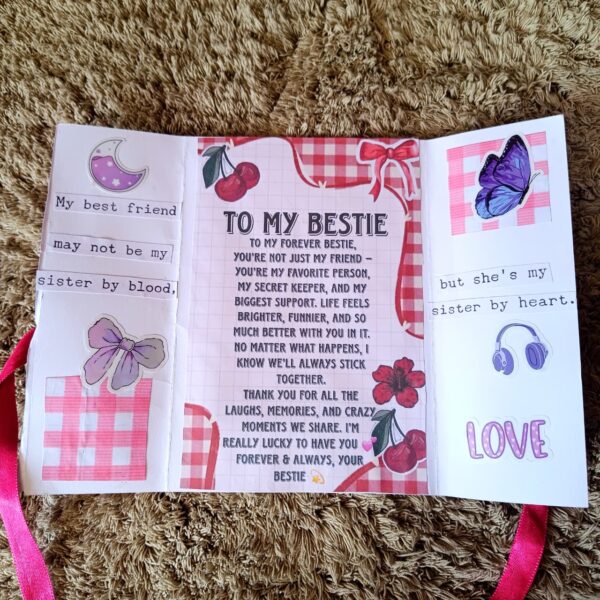 My best friend
may not be my
sister by blood,
TO MY BESTIE
TO MY FOREVER BESTIE,
YOU'RE NOT JUST MY FRIEND –
YOU'RE MY FAVORITE PERSON,
MY SECRET KEEPER, AND MY
BIGGEST SUPPORT. LIFE FEELS
BRIGHTER, FUNNIER, AND SO
MUCH BETTER WITH YOU IN IT.
NO MATTER WHAT HAPPENS, I
KNOW WE'LL ALWAYS STICK
TOGETHER.
THANK YOU FOR ALL THE
LAUGHS, MEMORIES, AND CRAZY
MOMENTS WE SHARE. I'M
REALLY LUCKY TO HAVE YOU 💕
FOREVER & ALWAYS, YOUR
BESTIE 💫
but she's my
sister by heart.
LOVE